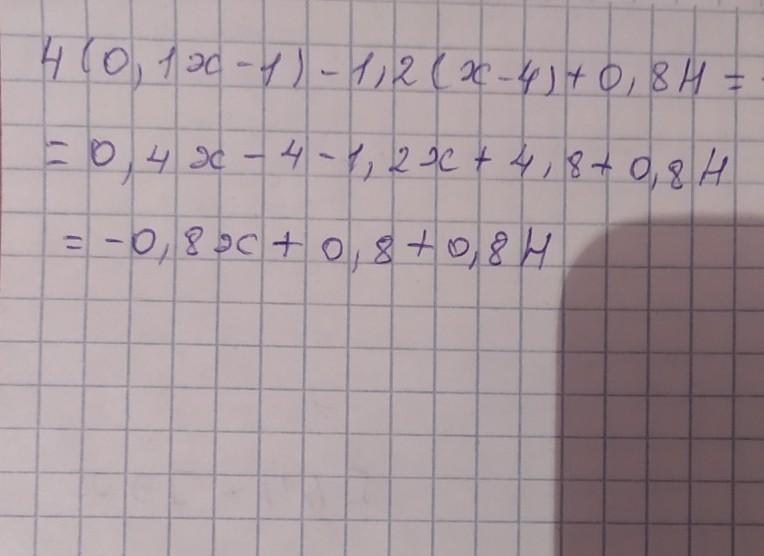 4(0,1x-1)-1,2(x-4)+0,8H=
=0,4x-4-1,2x+4,8+0,8H
=-0,8x+0,8+0,8H